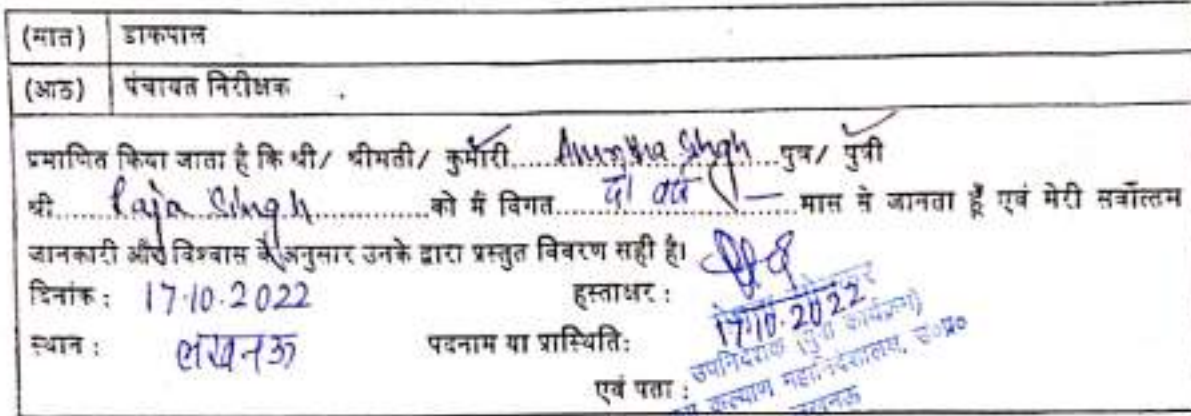 (सात) डाकपाल
(आठ) पंचायत निरीक्षक
प्रमाणित किया जाता है कि श्री/ श्रीमती/ कुमारी.....Singh...पुत्र/ पुत्री
श्री.....Raja Singh.............को मैं विगत.....दो वर्ष —.....मास से जानता हूँ एवं मेरी सर्वोत्तम
जानकारी और विश्वास के अनुसार उनके द्वारा प्रस्तुत विवरण सही है।
दिनांक : 17.10.2022 हस्ताक्षर :
17.10.2022
स्थान : लखनऊ पदनाम या प्रास्थिति:
उपनिदेशक (युवा कार्यक्रम)
एवं पता : कल्याण महानिदेशालय, उ०प्र०
लखनऊ